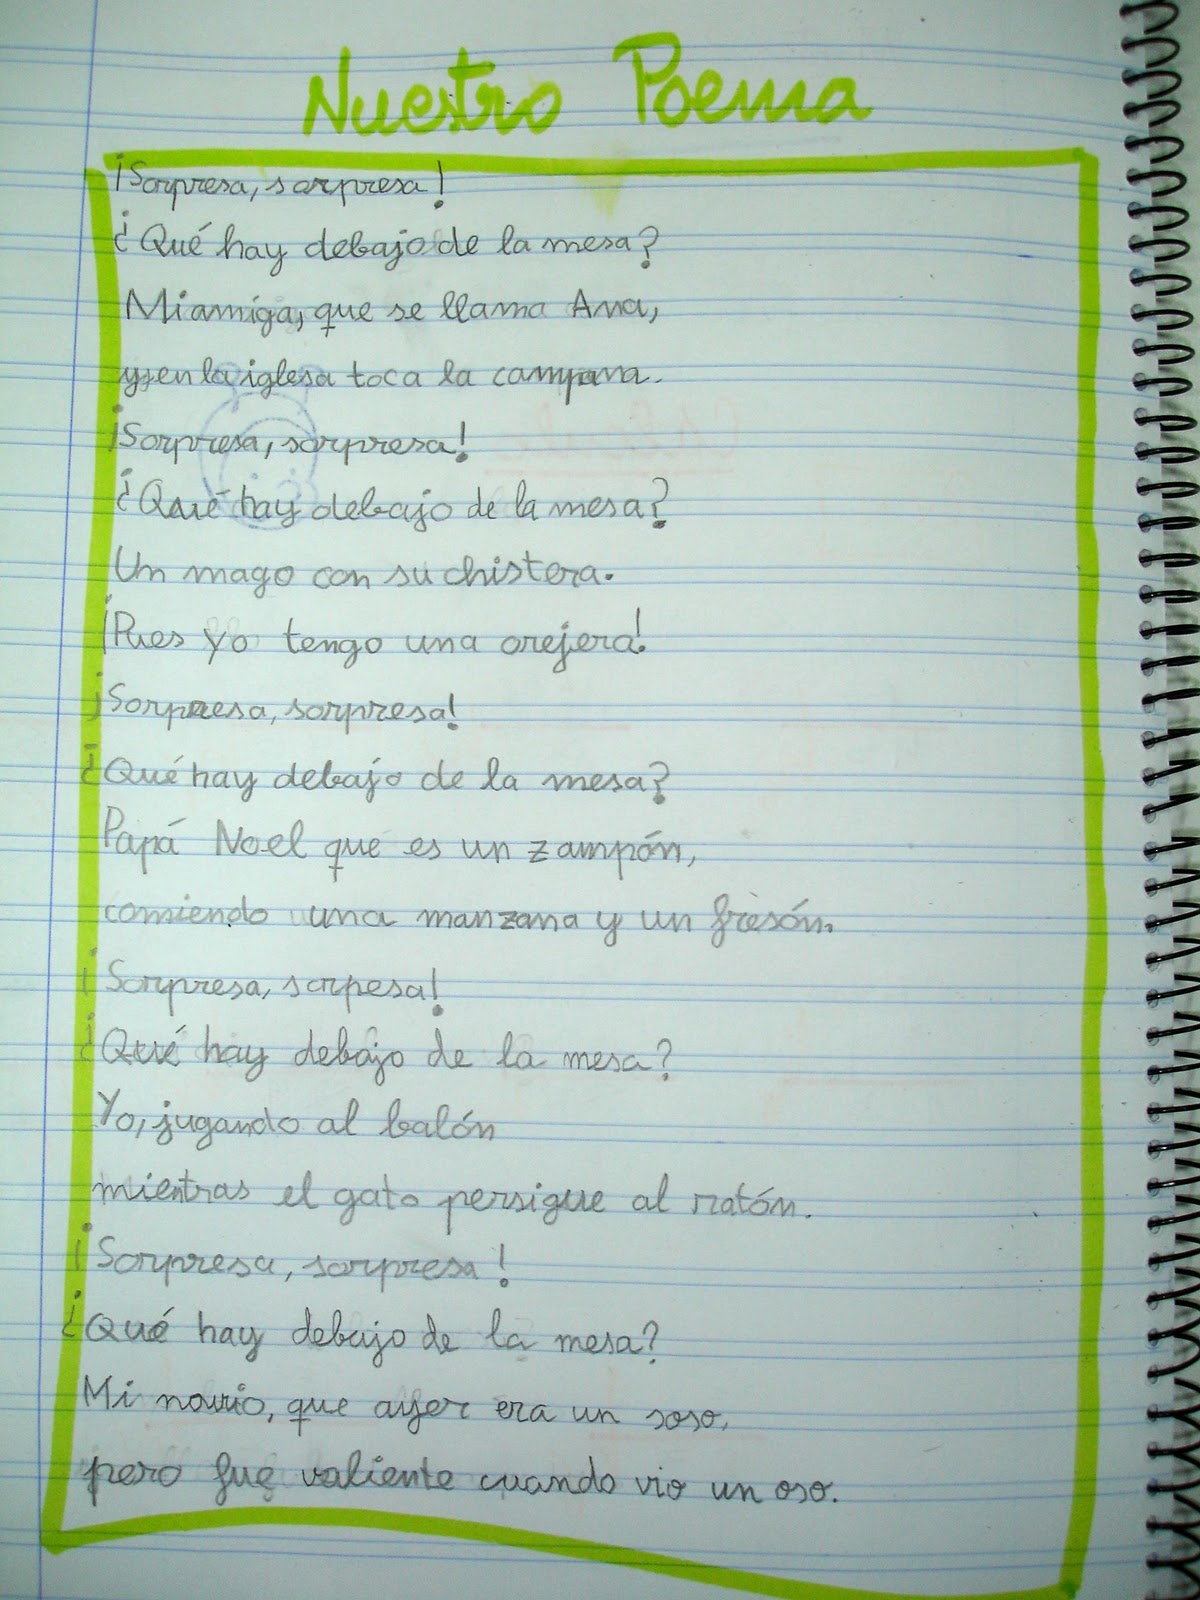 Nuestro Poema
¡Sorpresa, sorpresa!
¿Qué hay debajo de la mesa?
Mi amiga, que se llama Ana,
y en la iglesa toca la campana.
¡Sorpresa, sorpresa!
¿Qué hay debajo de la mesa?
Un mago con su chistera.
¡Pues yo tengo una orejera!
¡Sorpresa, sorpresa!
¿Qué hay debajo de la mesa?
Papá Noel que es un zampón,
comiendo una manzana y un fresón.
¡Sorpresa, sorpesa!
¿Qué hay debajo de la mesa?
Yo, jugando al balón
mientras el gato persigue al ratón.
¡Sorpresa, sorpresa!
¿Qué hay debajo de la mesa?
Mi novio, que ayer era un soso,
pero fue valiente cuando vio un oso.